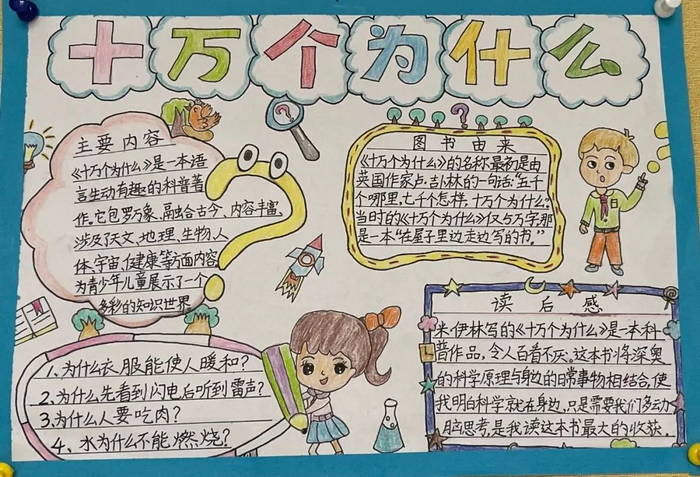 十万个为什么
主要内容
《十万个为什么》是一本语
言生动有趣的科普著
作。它包罗万象、融会古今、内容丰富、
涉及了天文、地理、生物、人
体、宇宙、健康等方面内容,
为青少年儿童展示了一个
多彩的知识世界
图书由来
《十万个为什么》的名称最初是由
英国作家卢·吉卜林的一句话:"五千
个哪里,七千个怎样,十万个为什么。"
当时的《十万个为什么》仅5万字,那
是一本"在屋子里边走边写的书。"
1、为什么衣服能使人暖和?
2、为什么先看到闪电后听到雷声?
3、为什么人要吃肉?
4、水为什么不能燃烧?
读后感
米·伊林写的《十万个为什么》是一本科
普作品,令人百看不厌。这本书将深奥
的科学原理与身边的日常事物相结合,使
我明白科学就在身边,只是需要我们多动
脑思考,是我读这本书最大的收获。